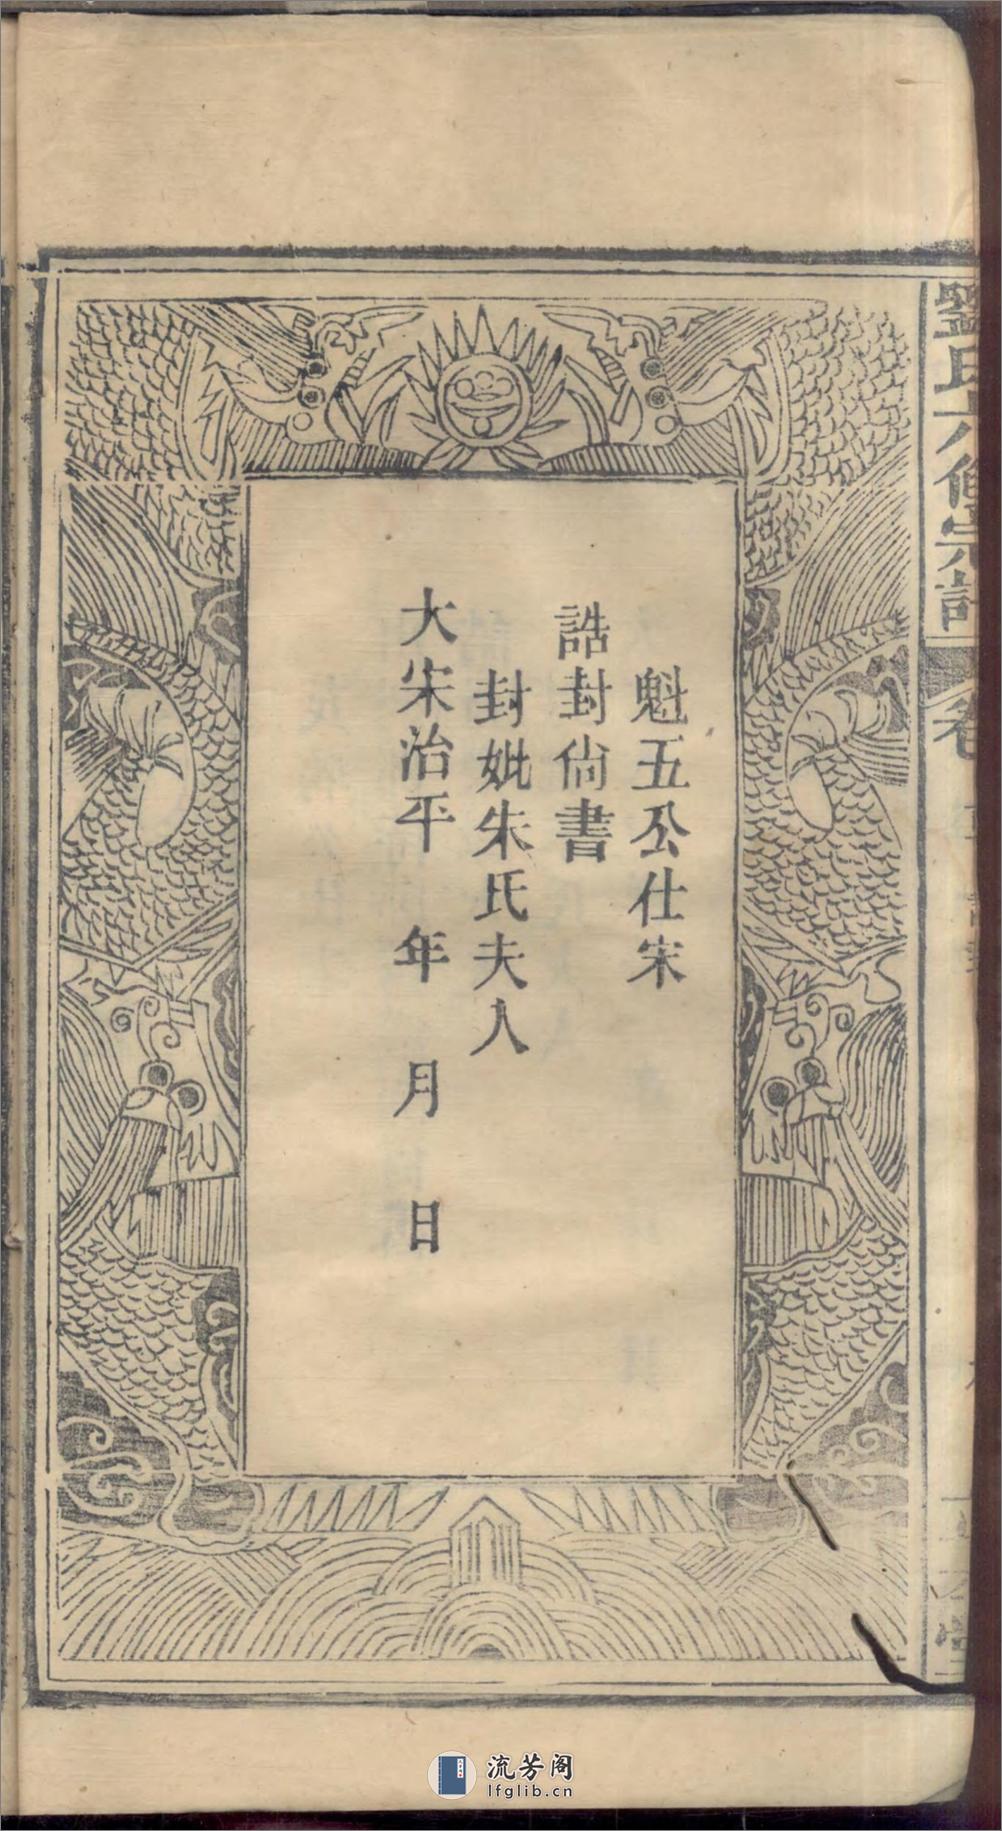 魁五公仕宋
誥封尙書
封妣朱氏夫人
大宋治平 年 月 日
劉氏六修宗譜
卷
流芳阁
lfglib.cn